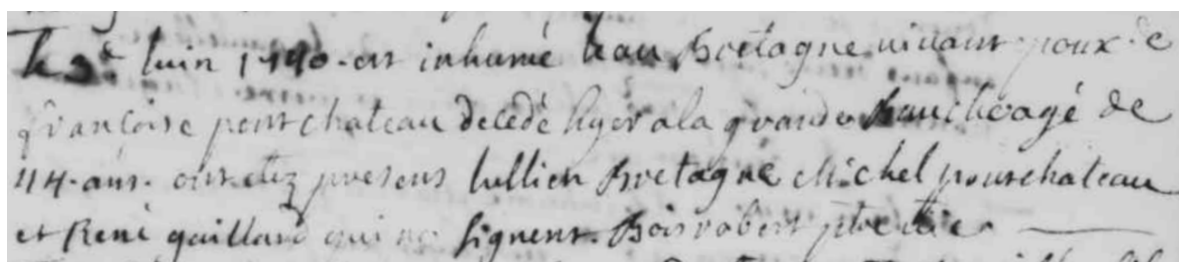 le 3e Juin 1740. est inhumé Jean Bretagne vivant epoux de
françoise pontchateau decedé hyer a la grande agé de
44. ans. ont etez presens Jullien Bretagne Michel pontchateau
et René gaillard qui ne signent. Boisrobert ptre